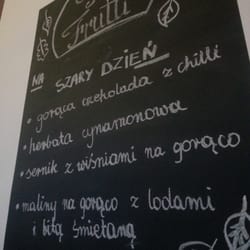 Frutti
NA SZARY DZIEŃ
• gorąca czekolada z chilli
• herbata cynamonowa
• sernik z wiśniami na gorąco
• maliny na gorąco z lodami
i bitą śmietaną